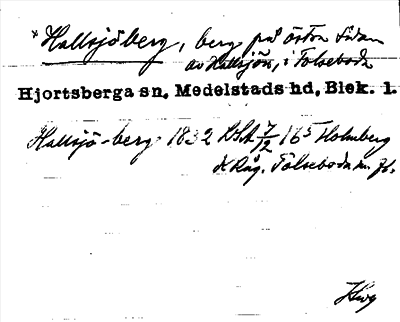 * Hallsjöberg, berg på östra sidan
av Hallsjön, i Tolseboda
Hjortsberga sn, Medelstads hd, Blek. l.
Hallsjö-berg 1832 LSA 7/12 165 Holmberg
Tolseboda